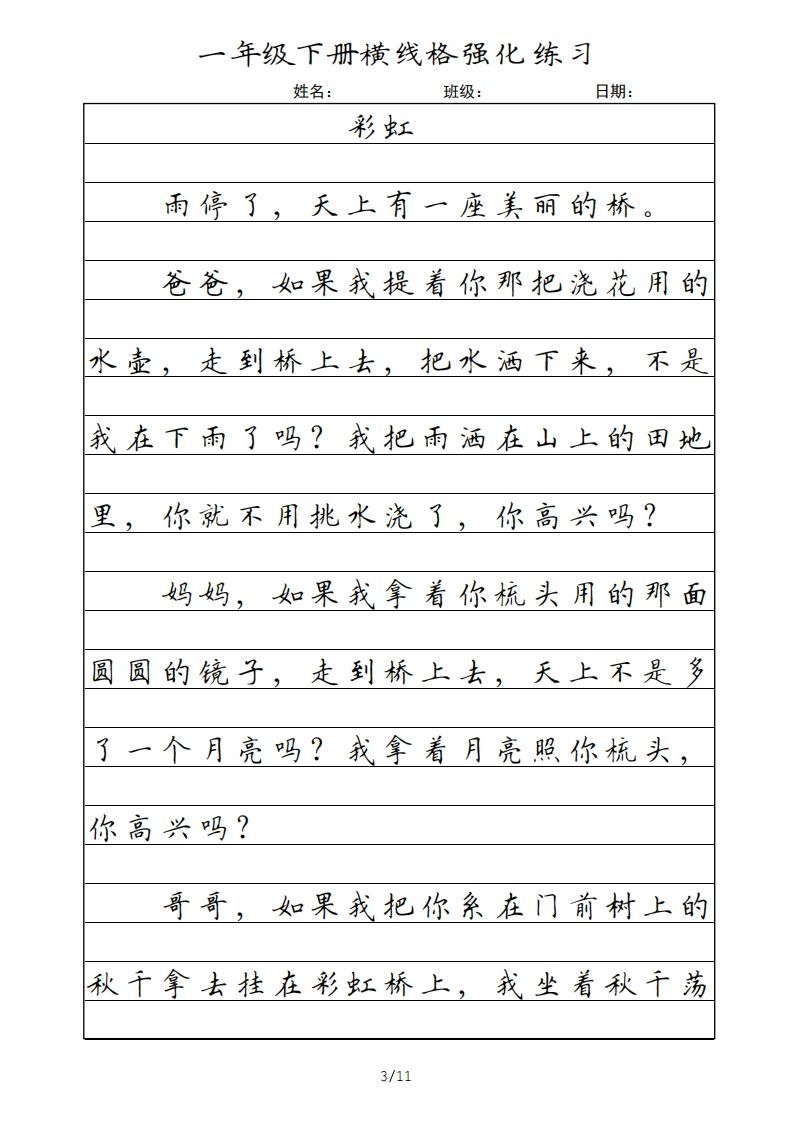 一年级下册横线格强化练习
姓名： 班级： 日期：
彩虹
雨停了，天上有一座美丽的桥。
爸爸，如果我提着你那把浇花用的
水壶，走到桥上去，把水洒下来，不是
我在下雨了吗？我把雨洒在山上的田地
里，你就不用挑水浇了，你高兴吗？
妈妈，如果我拿着你梳头用的那面
圆圆的镜子，走到桥上去，天上不是多
了一个月亮吗？我拿着月亮照你梳头，
你高兴吗？
哥哥，如果我把你系在门前树上的
秋千拿去挂在彩虹桥上，我坐着秋千荡
3/11